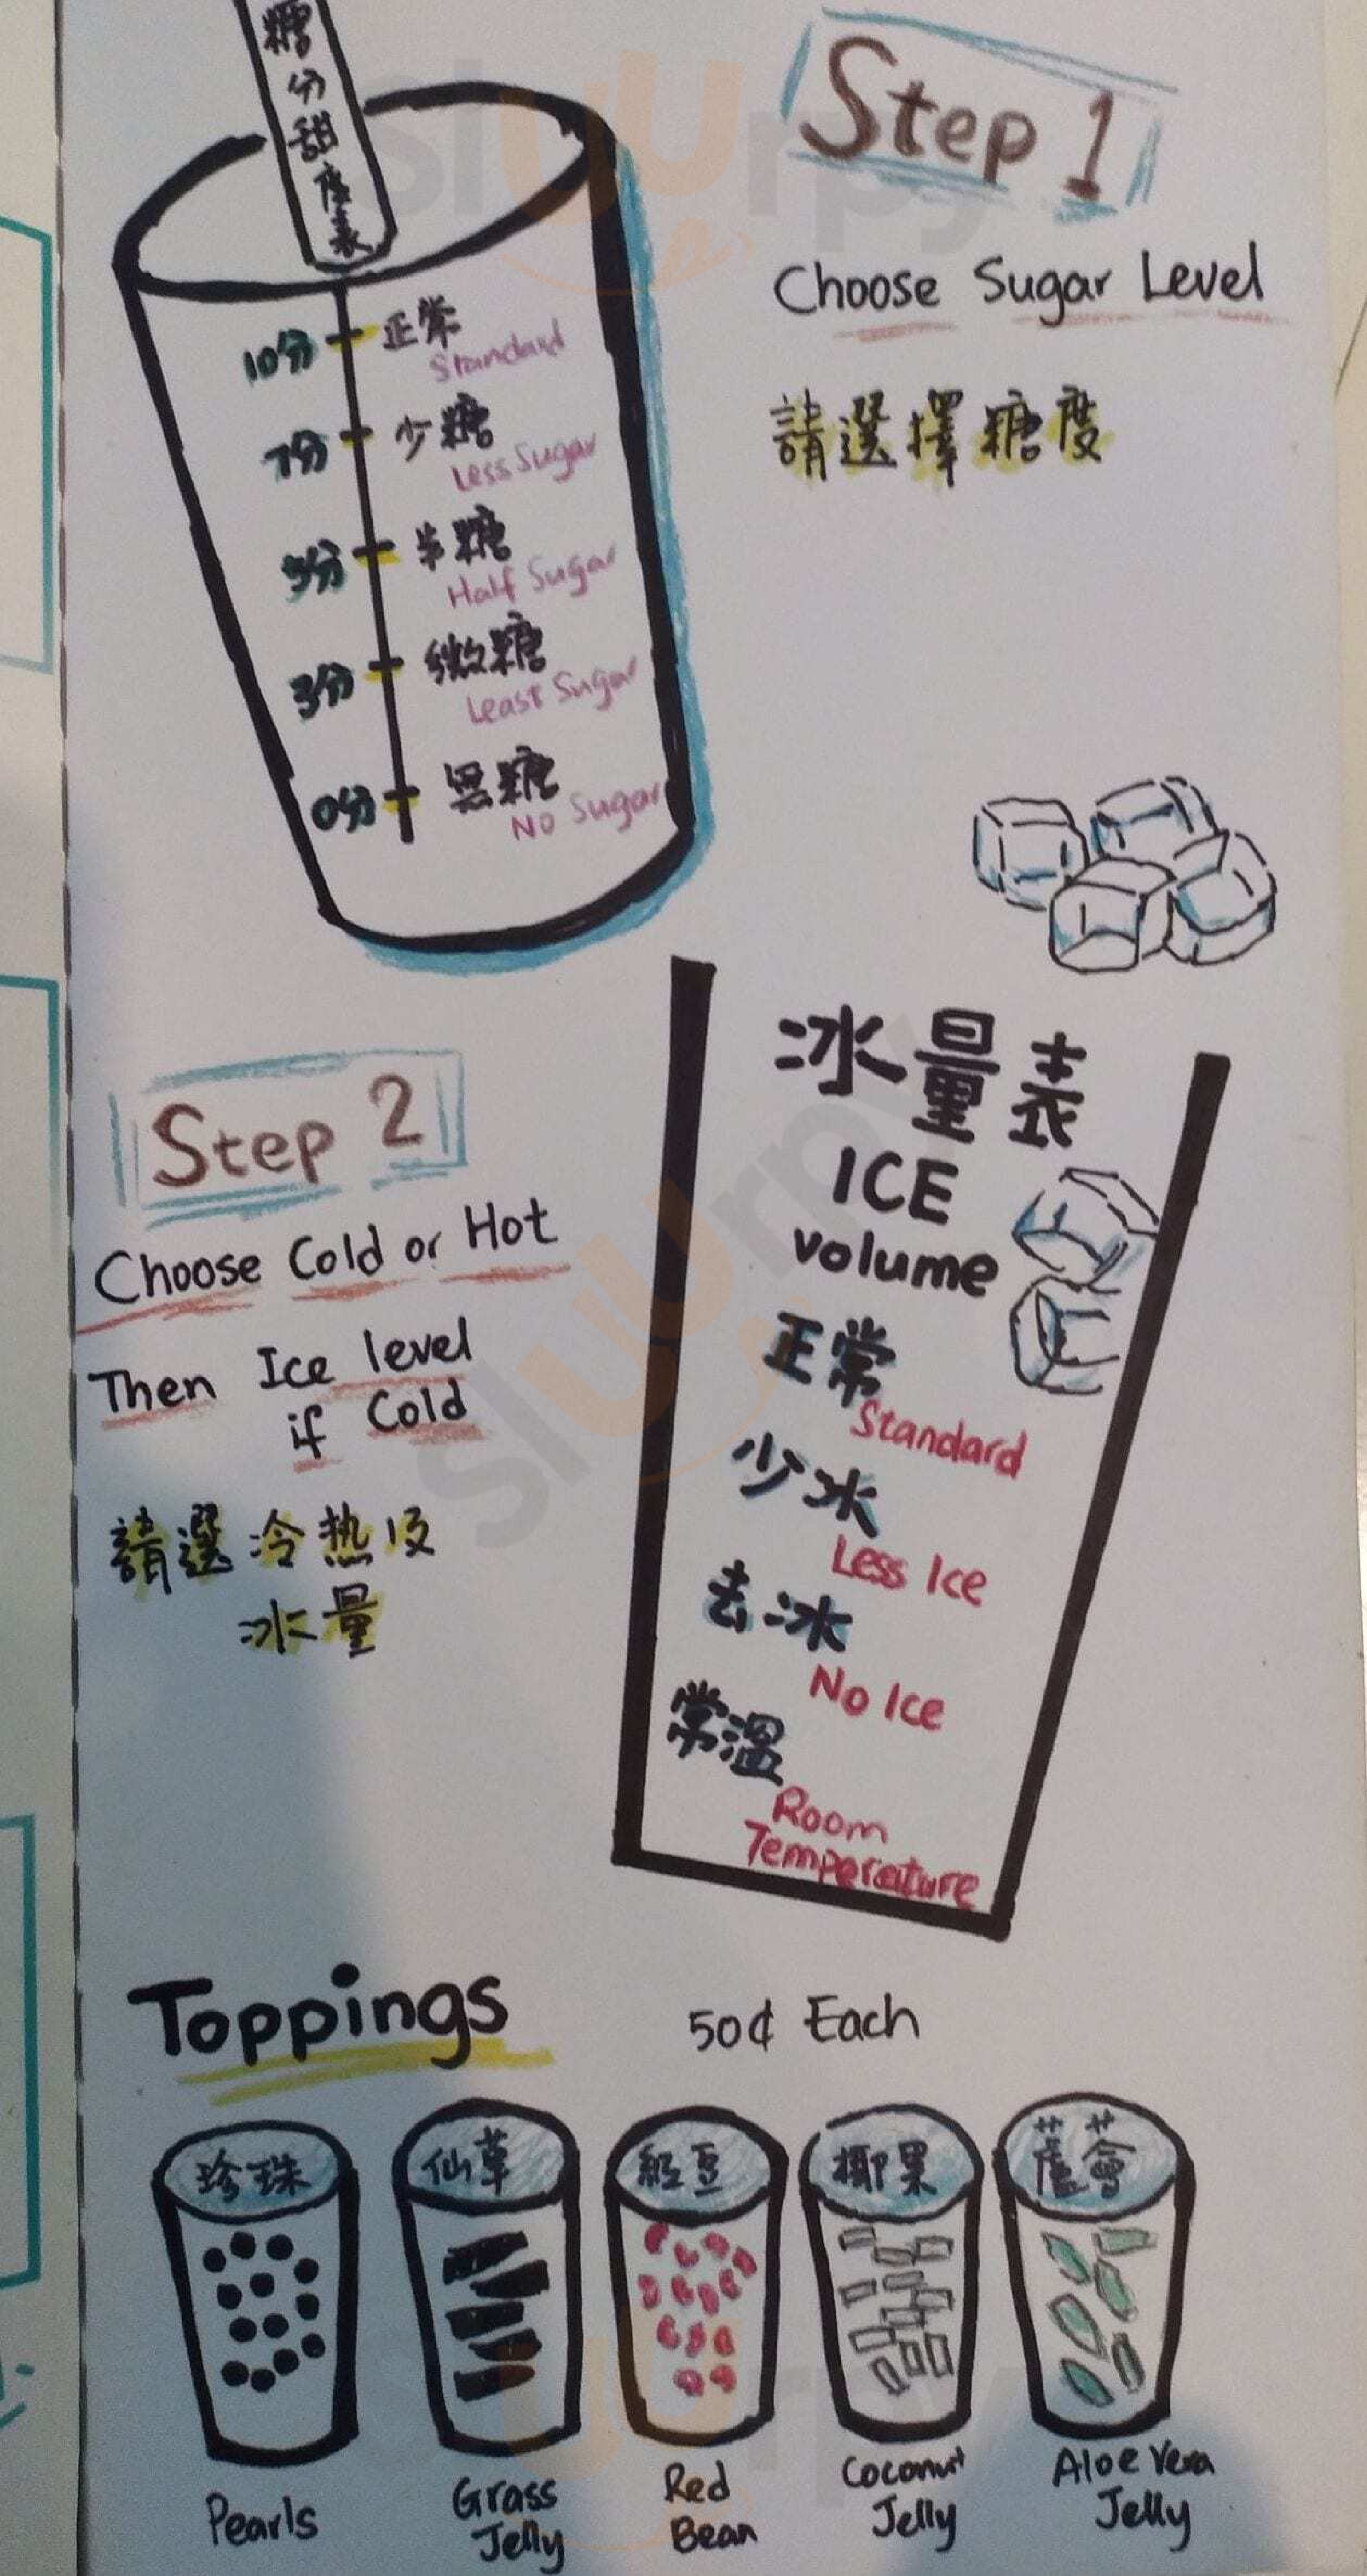 糖分甜度表
Step 1
Choose Sugar Level
請選擇糖度
10分 正常
Standard
7分 少糖
Less Sugar
5分 半糖
Half Sugar
3分 微糖
Least Sugar
0分 無糖
No Sugar
Step 2
Choose Cold or Hot
Then Ice level
if Cold
請選冷热及
冰量
冰量表
ICE
volume
正常
Standard
少冰
Less Ice
去冰
No Ice
常溫
Room
Temperature
Toppings 50¢ Each
珍珠 仙草 紅豆 椰果 蘆薈
Pearls
Grass
Jelly
Red
Bean
Coconut
Jelly
Aloe Vera
Jelly
sluurpy
sluurpy
sluurpy